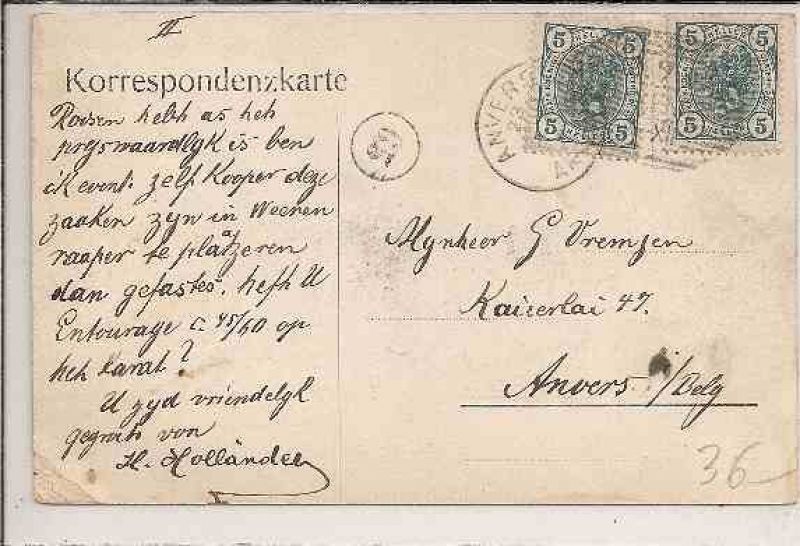 II
Korrespondenzkarte
Roosen hebt as heh
pryswaardlyk is ben
ik event. zelf Kooper deze
zaaken zyn in Weenen
raaper te platzeren
dan gefastes. hefh U
Entourage c. 45/60 op
heh karat?
U zyd vriendelyk
gegrub von
H. Holländer
ANVERS
5 HELLER 5
5 5
5 HELLER 5
5 5
Mynheer G Vremsen
Kaiserlai 47.
Anvers i/Belg
36